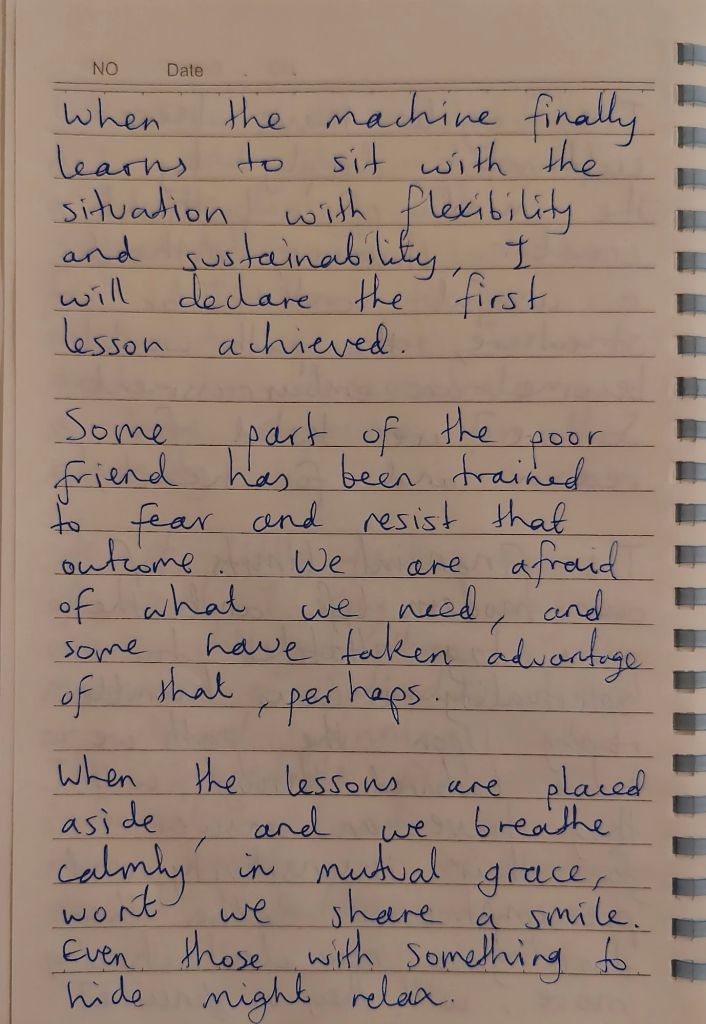 NO Date
When the machine finally
learns to sit with the
situation with flexibility
and sustainability, I
will declare the first
lesson achieved.
Some part of the poor
friend has been trained
to fear and resist that
outcome. We are afraid
of what we need, and
some have taken advantage
of that, perhaps.
When the lessons are placed
aside, and we breathe
calmly in mutual grace,
wont we share a smile.
Even those with something to
hide might relax.